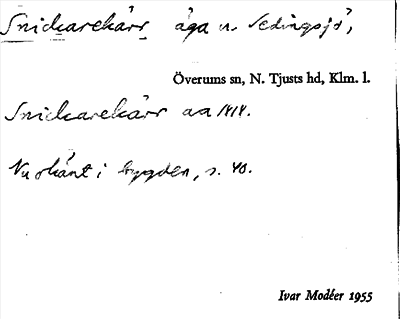 Snickarekärr äga u. Sedingsjö,
Överums sn, N. Tjusts hd, Klm. l.
Snickarekärr aa 1818.
Nu okänt i bygden, s. 40.
Ivar Modéer 1955